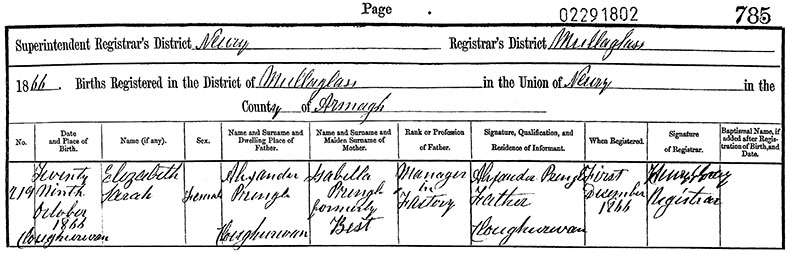 Page 02291802 785
Superintendent Registrar's District Newry Registrar's District Mullaglass
1866. Births Registered in the District of Mullaglass in the Union of Newry in the
County of Armagh
No. Date and Place of Birth. Name (if any). Sex. Name and Surname and Dwelling Place of Father. Name and Surname and Maiden Surname of Mother. Rank or Profession of Father. Signature, Qualification, and Residence of Informant. When Registered. Signature of Registrar. Baptismal Name, if added after Registration of Birth, and Date.
Twenty Elizabeth Alexander Isabella Manager Alexander Pringle First Henry
219 Ninth Sarah Female Pringle Pringle in Father December Registrar
October formerly Factory 1866
1866 Best
Cloughurevan Cloughurevan Cloughurevan